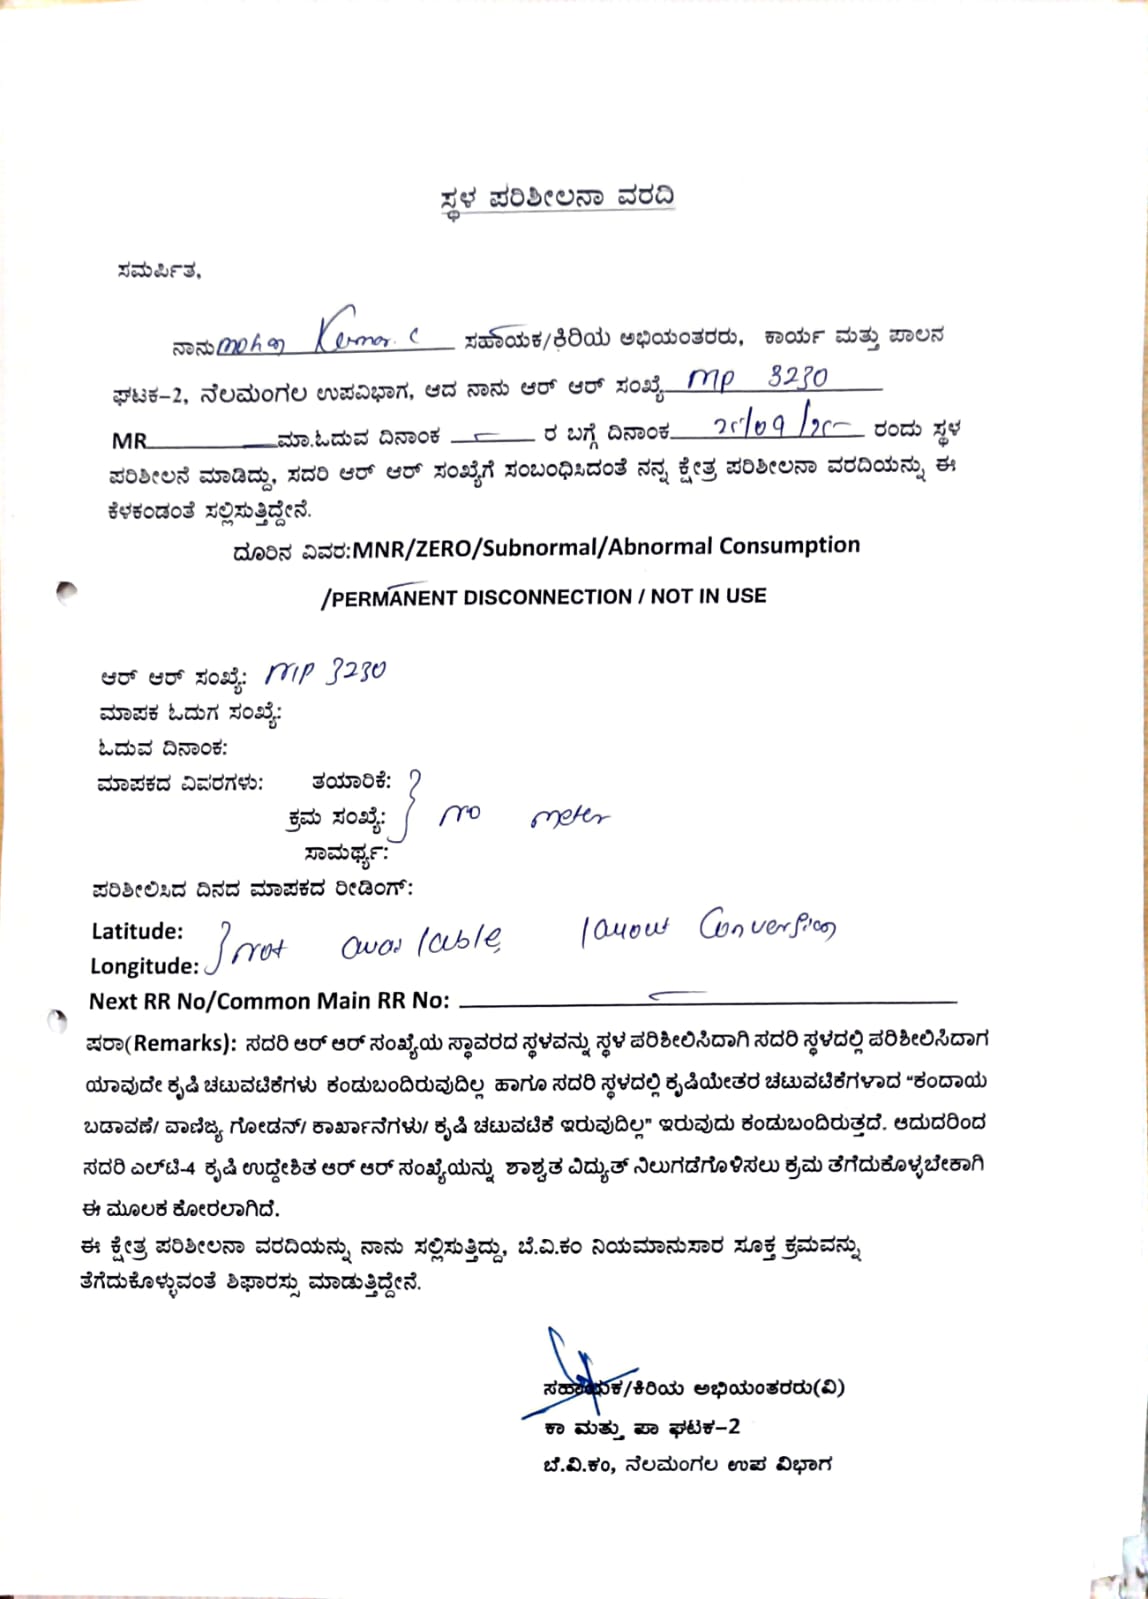 ಸ್ಥಳ ಪರಿಶೀಲನಾ ವರದಿ
ಸಮರ್ಪಿತ,
ನಾನು mohan Kumar. C ಸಹಾಯಕ/ಕಿರಿಯ ಅಭಿಯಂತರರು, ಕಾರ್ಯ ಮತ್ತು ಪಾಲನ
ಘಟಕ-2, ನೆಲಮಂಗಲ ಉಪವಿಭಾಗ, ಆದ ನಾನು ಆರ್ ಆರ್ ಸಂಖ್ಯೆ MP 3230
MR ಮಾ.ಓದುವ ದಿನಾಂಕ ರ ಬಗ್ಗೆ ದಿನಾಂಕ ರಂದು ಸ್ಥಳ
ಪರಿಶೀಲನೆ ಮಾಡಿದ್ದು, ಸದರಿ ಆರ್ ಆರ್ ಸಂಖ್ಯೆಗೆ ಸಂಬಂಧಿಸಿದಂತೆ ನನ್ನ ಕ್ಷೇತ್ರ ಪರಿಶೀಲನಾ ವರದಿಯನ್ನು ಈ
ಕೆಳಕಂಡಂತೆ ಸಲ್ಲಿಸುತ್ತಿದ್ದೇನೆ.
ದೂರಿನ ವಿವರ:MNR/ZERO/Subnormal/Abnormal Consumption
/PERMANENT DISCONNECTION / NOT IN USE
ಆರ್ ಆರ್ ಸಂಖ್ಯೆ: MP 3230
ಮಾಪಕ ಓದುಗ ಸಂಖ್ಯೆ:
ಓದುವ ದಿನಾಂಕ:
ಮಾಪಕದ ವಿವರಗಳು: ತಯಾರಿಕೆ:
ಕ್ರಮ ಸಂಖ್ಯೆ: no meter
ಸಾಮರ್ಥ್ಯ:
ಪರಿಶೀಲಿಸಿದ ದಿನದ ಮಾಪಕದ ರೀಡಿಂಗ್:
Latitude:
Longitude: not available, layout Conversion
Next RR No/Common Main RR No:
ಷರಾ(Remarks): ಸದರಿ ಆರ್ ಆರ್ ಸಂಖ್ಯೆಯ ಸ್ಥಾವರದ ಸ್ಥಳವನ್ನು ಸ್ಥಳ ಪರಿಶೀಲಿಸಿದಾಗಿ ಸದರಿ ಸ್ಥಳದಲ್ಲಿ ಪರಿಶೀಲಿಸಿದಾಗ
ಯಾವುದೇ ಕೃಷಿ ಚಟುವಟಿಕೆಗಳು ಕಂಡುಬಂದಿರುವುದಿಲ್ಲ ಹಾಗೂ ಸದರಿ ಸ್ಥಳದಲ್ಲಿ ಕೃಷಿಯೇತರ ಚಟುವಟಿಕೆಗಳಾದ "ಕಂದಾಯ
ಬಡಾವಣೆ/ ವಾಣಿಜ್ಯ ಗೋಡನ್/ ಕಾರ್ಖಾನೆಗಳು/ ಕೃಷಿ ಚಟುವಟಿಕೆ ಇರುವುದಿಲ್ಲ" ಇರುವುದು ಕಂಡುಬಂದಿರುತ್ತದೆ. ಆದುದರಿಂದ
ಸದರಿ ಎಲ್‌ಟಿ-4 ಕೃಷಿ ಉದ್ದೇಶಿತ ಆರ್ ಆರ್ ಸಂಖ್ಯೆಯನ್ನು ಶಾಶ್ವತ ವಿದ್ಯುತ್ ನಿಲುಗಡೆಗೊಳಿಸಲು ಕ್ರಮ ತೆಗೆದುಕೊಳ್ಳಬೇಕಾಗಿ
ಈ ಮೂಲಕ ಕೋರಲಾಗಿದೆ.
ಈ ಕ್ಷೇತ್ರ ಪರಿಶೀಲನಾ ವರದಿಯನ್ನು ನಾನು ಸಲ್ಲಿಸುತ್ತಿದ್ದು, ಬೆ.ವಿ.ಕಂ ನಿಯಮಾನುಸಾರ ಸೂಕ್ತ ಕ್ರಮವನ್ನು
ತೆಗೆದುಕೊಳ್ಳುವಂತೆ ಶಿಫಾರಸ್ಸು ಮಾಡುತ್ತಿದ್ದೇನೆ.
ಸಹಾಯಕ/ಕಿರಿಯ ಅಭಿಯಂತರರು(ವಿ)
ಕಾ ಮತ್ತು ಪಾ ಘಟಕ-2
ಬೆ.ವಿ.ಕಂ, ನೆಲಮಂಗಲ ಉಪ ವಿಭಾಗ